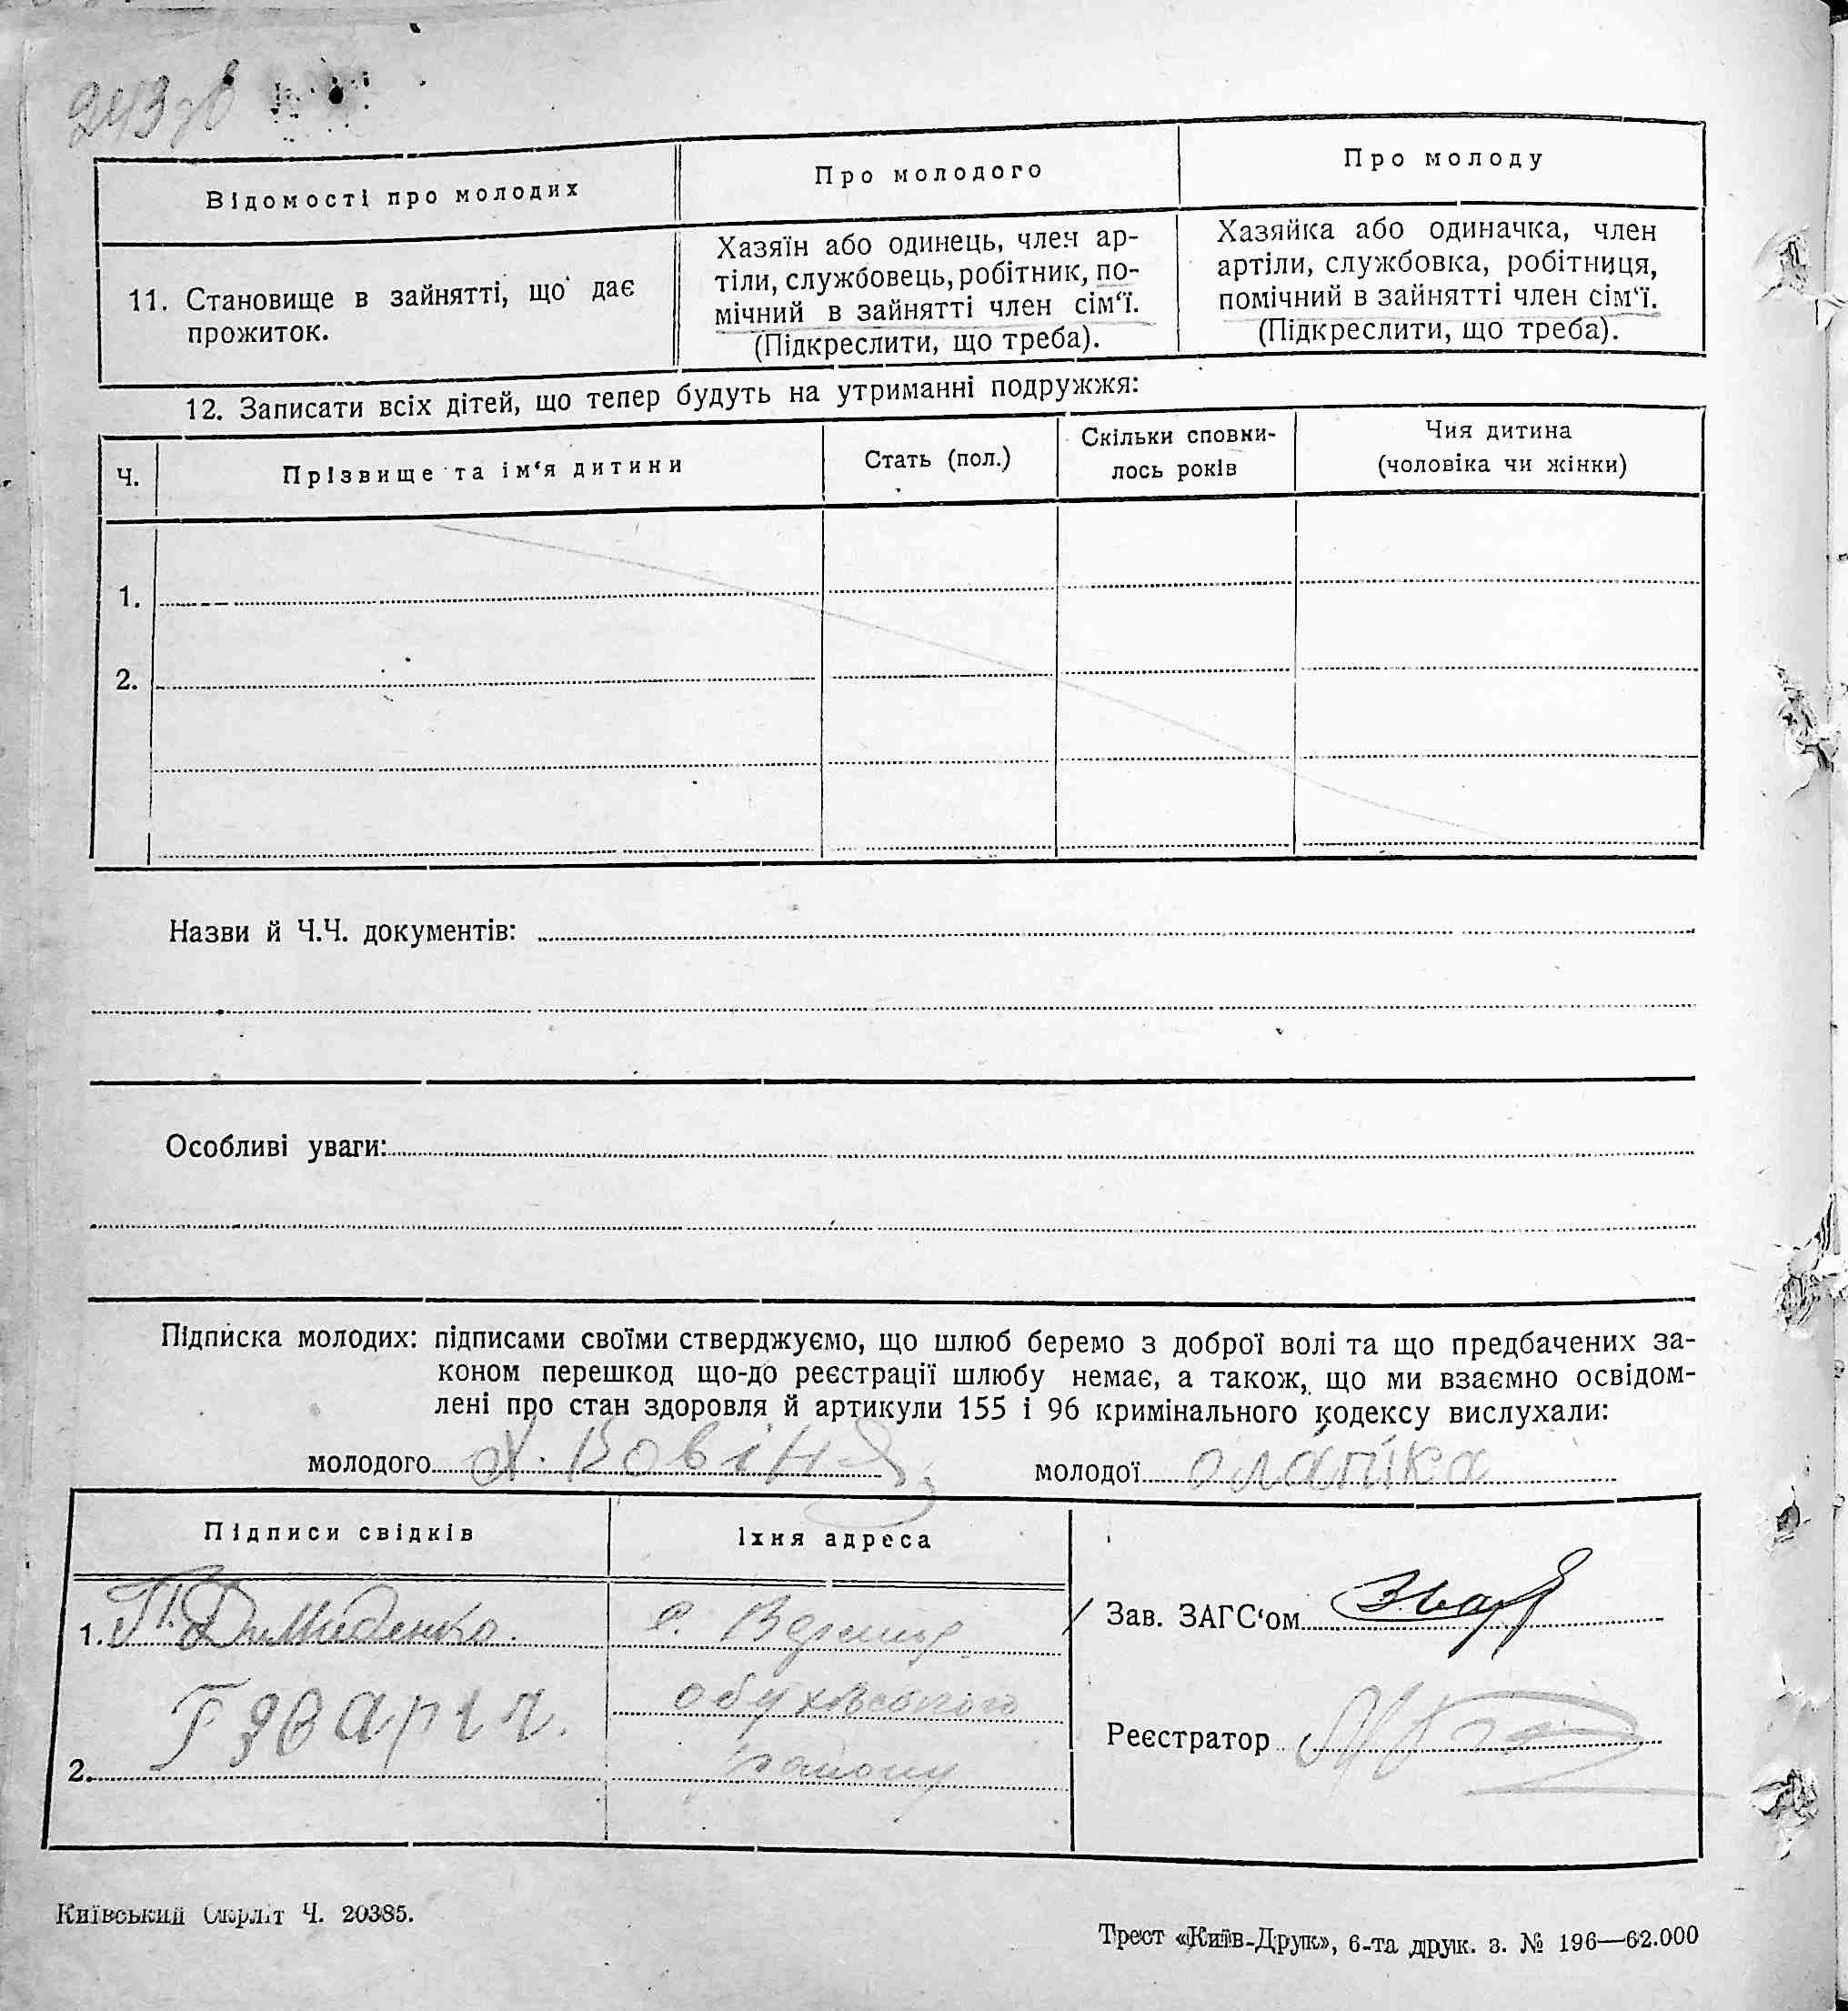 243 зв
Відомості про молодих
Про молодого
Про молоду
11. Становище в зайнятті, що дає
прожиток.
Хазяїн або одинець, член ар-
тіли, службовець, робітник, по-
мічний в зайнятті член сім‘ї.
(Підкреслити, що треба).
Хазяйка або одиначка, член
артіли, службовка, робітниця,
помічний в зайнятті член сім‘ї.
(Підкреслити, що треба).
12. Записати всіх дітей, що тепер будуть на утриманні подружжя:
Ч.
Прізвище та ім‘я дитини
Стать (пол.)
Скільки сповни-
лось років
Чия дитина
(чоловіка чи жінки)
1.
2.
Назви й Ч.Ч. документів:
Особливі уваги:
Підписка молодих: підписами своїми стверджуємо, що шлюб беремо з доброї волі та що предбачених за-
коном перешкод що-до реєстрації шлюбу немає, а також, що ми взаємно освідом-
лені про стан здоровля й артикули 155 і 96 кримінального кодексу вислухали:
молодого Х. Вовін
молодої
Підписи свідків
Їхня адреса
1. П. Димиденко.
с.
Обухівського
району
2.
Зав. ЗАГС‘ом
Реєстратор
Київський Окрліт Ч. 20385.
Трест «Київ-Друк», 6-та друк. з. № 196—62.000